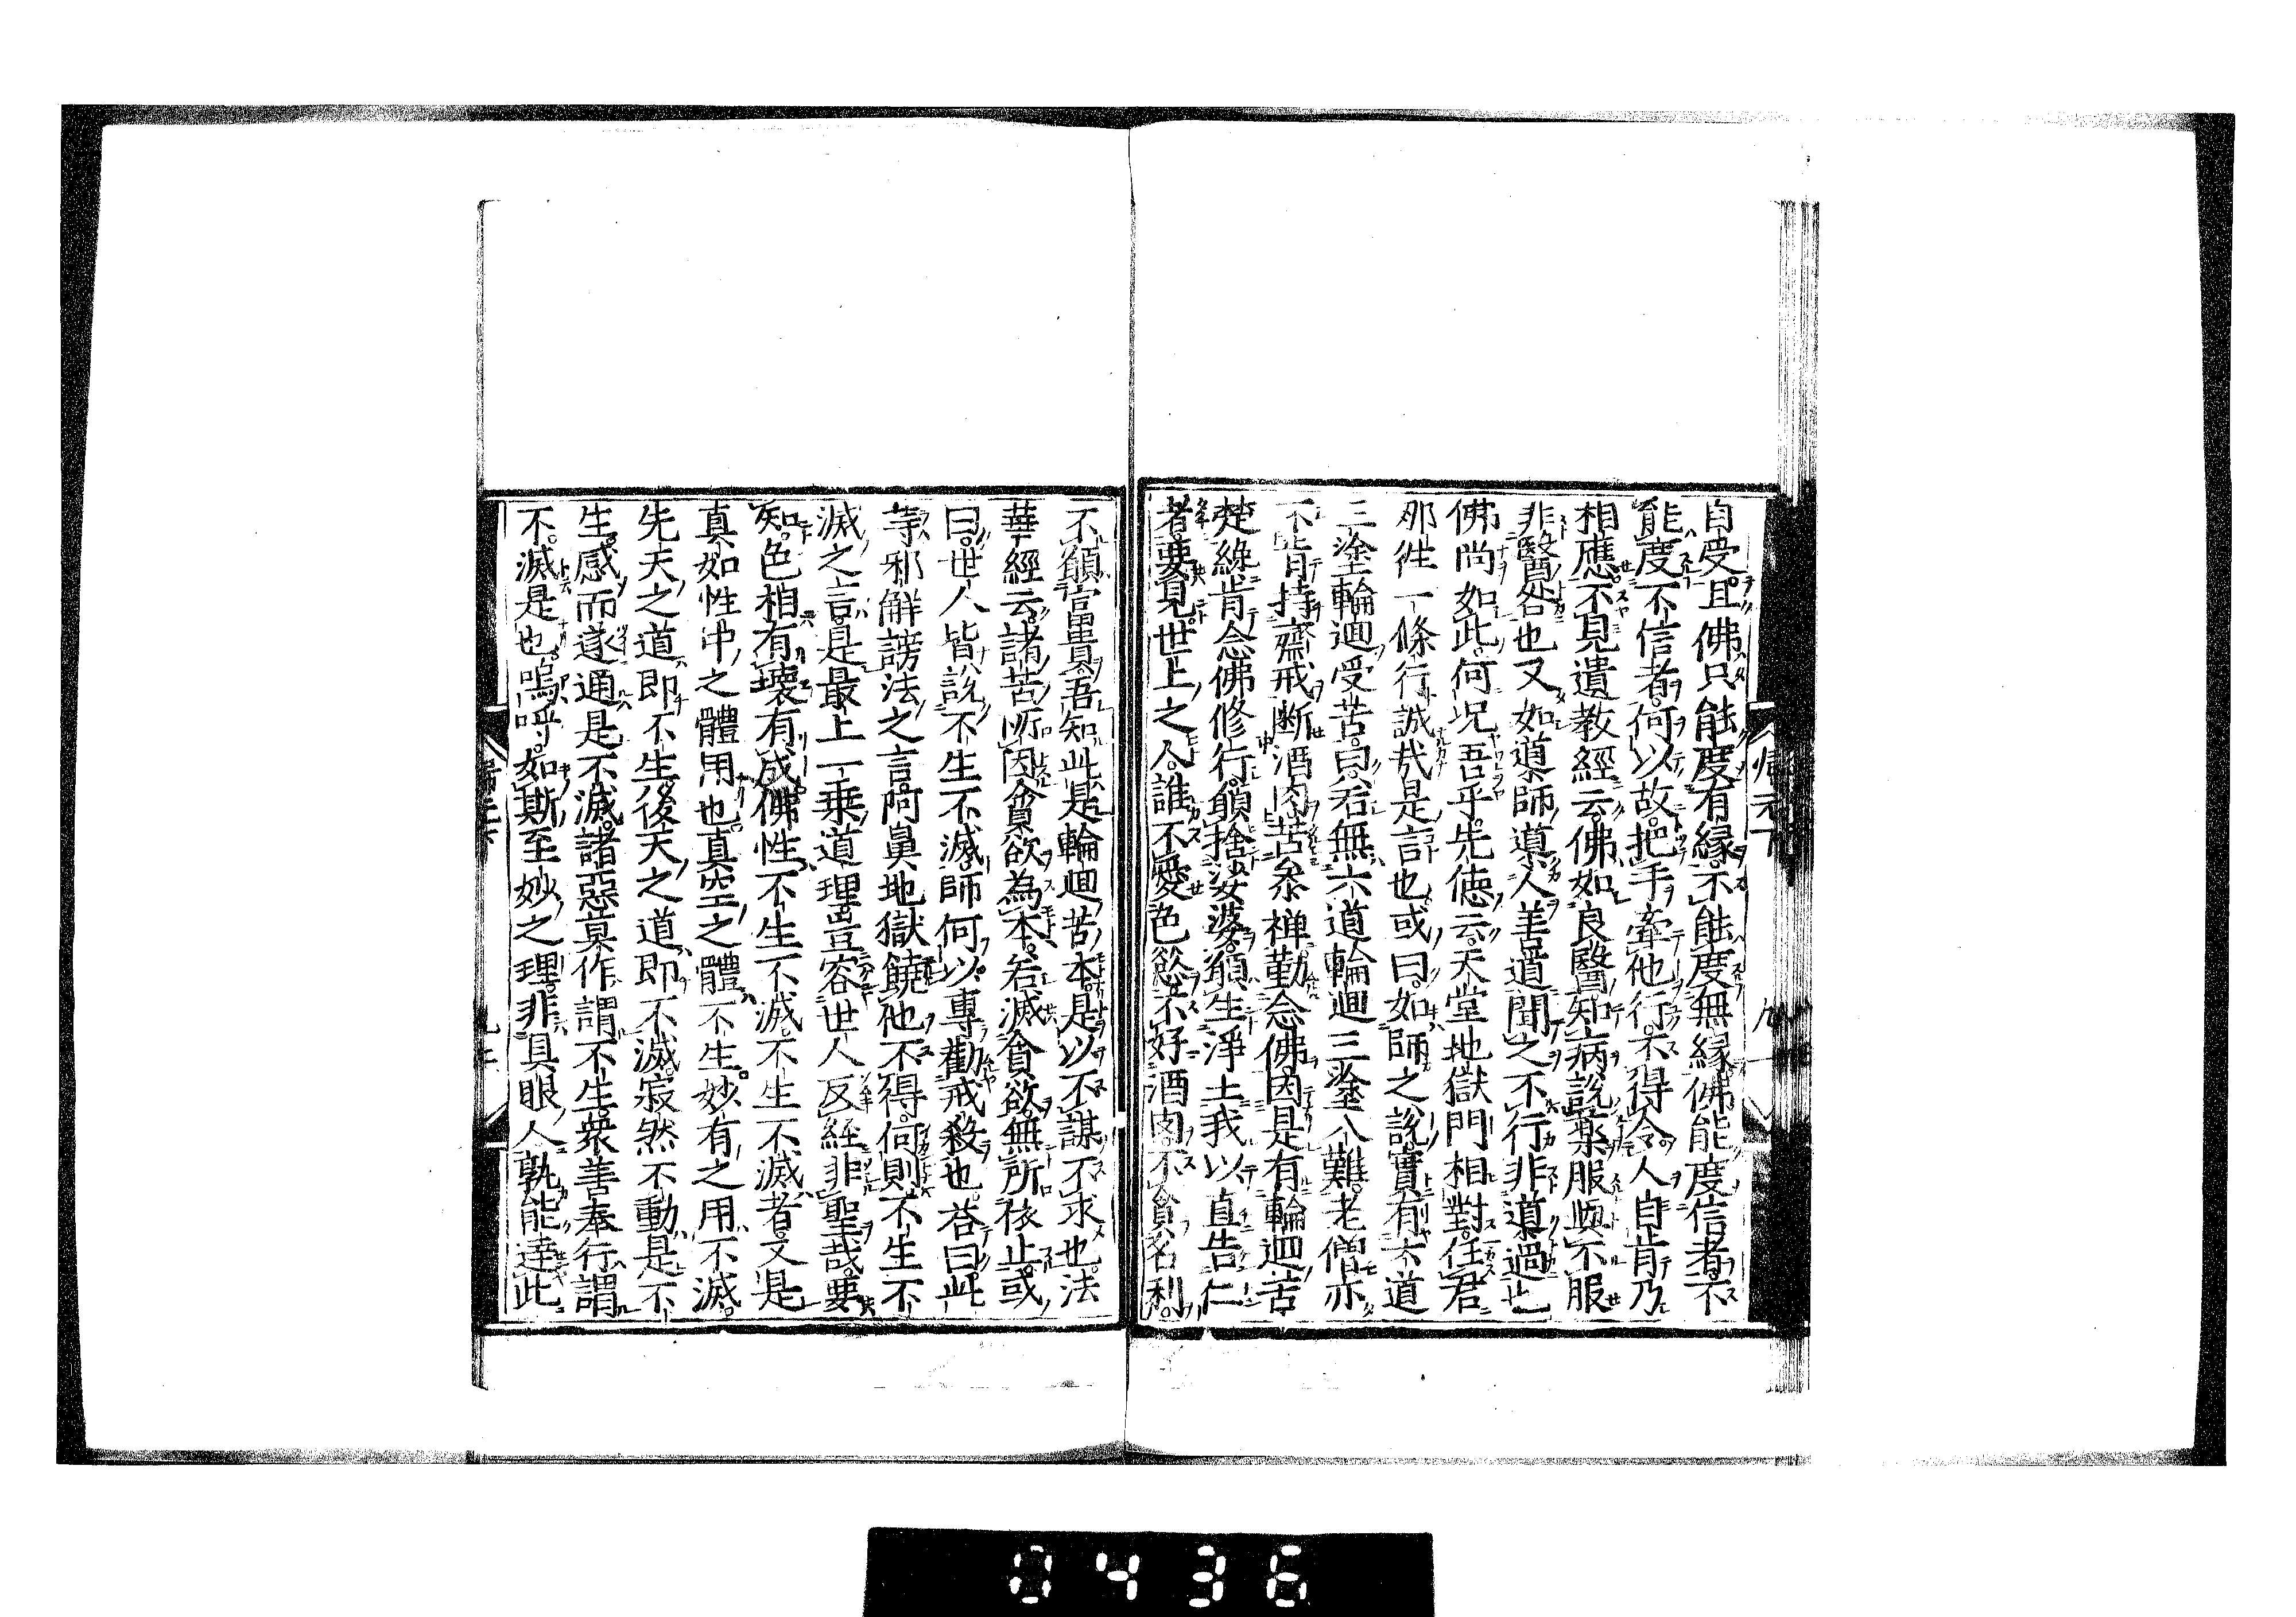 自受且佛只能度有緣不能度無緣佛能度信者不
能度不信者何以故把手牽他行不得令人自肯乃
相應不見遺教經云佛如良醫知病說藥服與不服
非醫咎也又如導師導人善道聞之不行非導過也
佛尚如此何況吾乎先德云天堂地獄門相對任君
那徃一條行誠哉是言也或曰如師之說實有六道
三塗輪迴受苦曰若無六道輪迴三塗八難老僧亦
不肯持齋戒断酒肉苦叅禅勤念佛因是有輪迴苦
楚緣肯念佛修行願捨娑婆願生淨土我以直告仁
者要見世上之人誰不愛色慾不好酒肉不貪名利
不願富貴吾知此是輪迴苦本是以不謀不求也法
華經云諸苦所因貪欲為本若滅貪欲無所依止或
曰世人皆說不生不滅師何以專勸戒殺也荅曰此
等邪解謗法之言阿鼻地獄饒他不得何則不生不
滅之言是最上一乗道理豈容世人反經非聖哉要
知色相有壞有成佛性不生不滅不生不滅者又是
真如性中之體用也真空之體不生妙有之用不滅
先天之道即不生後天之道即不滅寂然不動是不
生感而遂通是不滅諸惡莫作謂不生衆善奉行謂
不滅是也嗚呼如斯至妙之理非具眼人孰能達此
0436